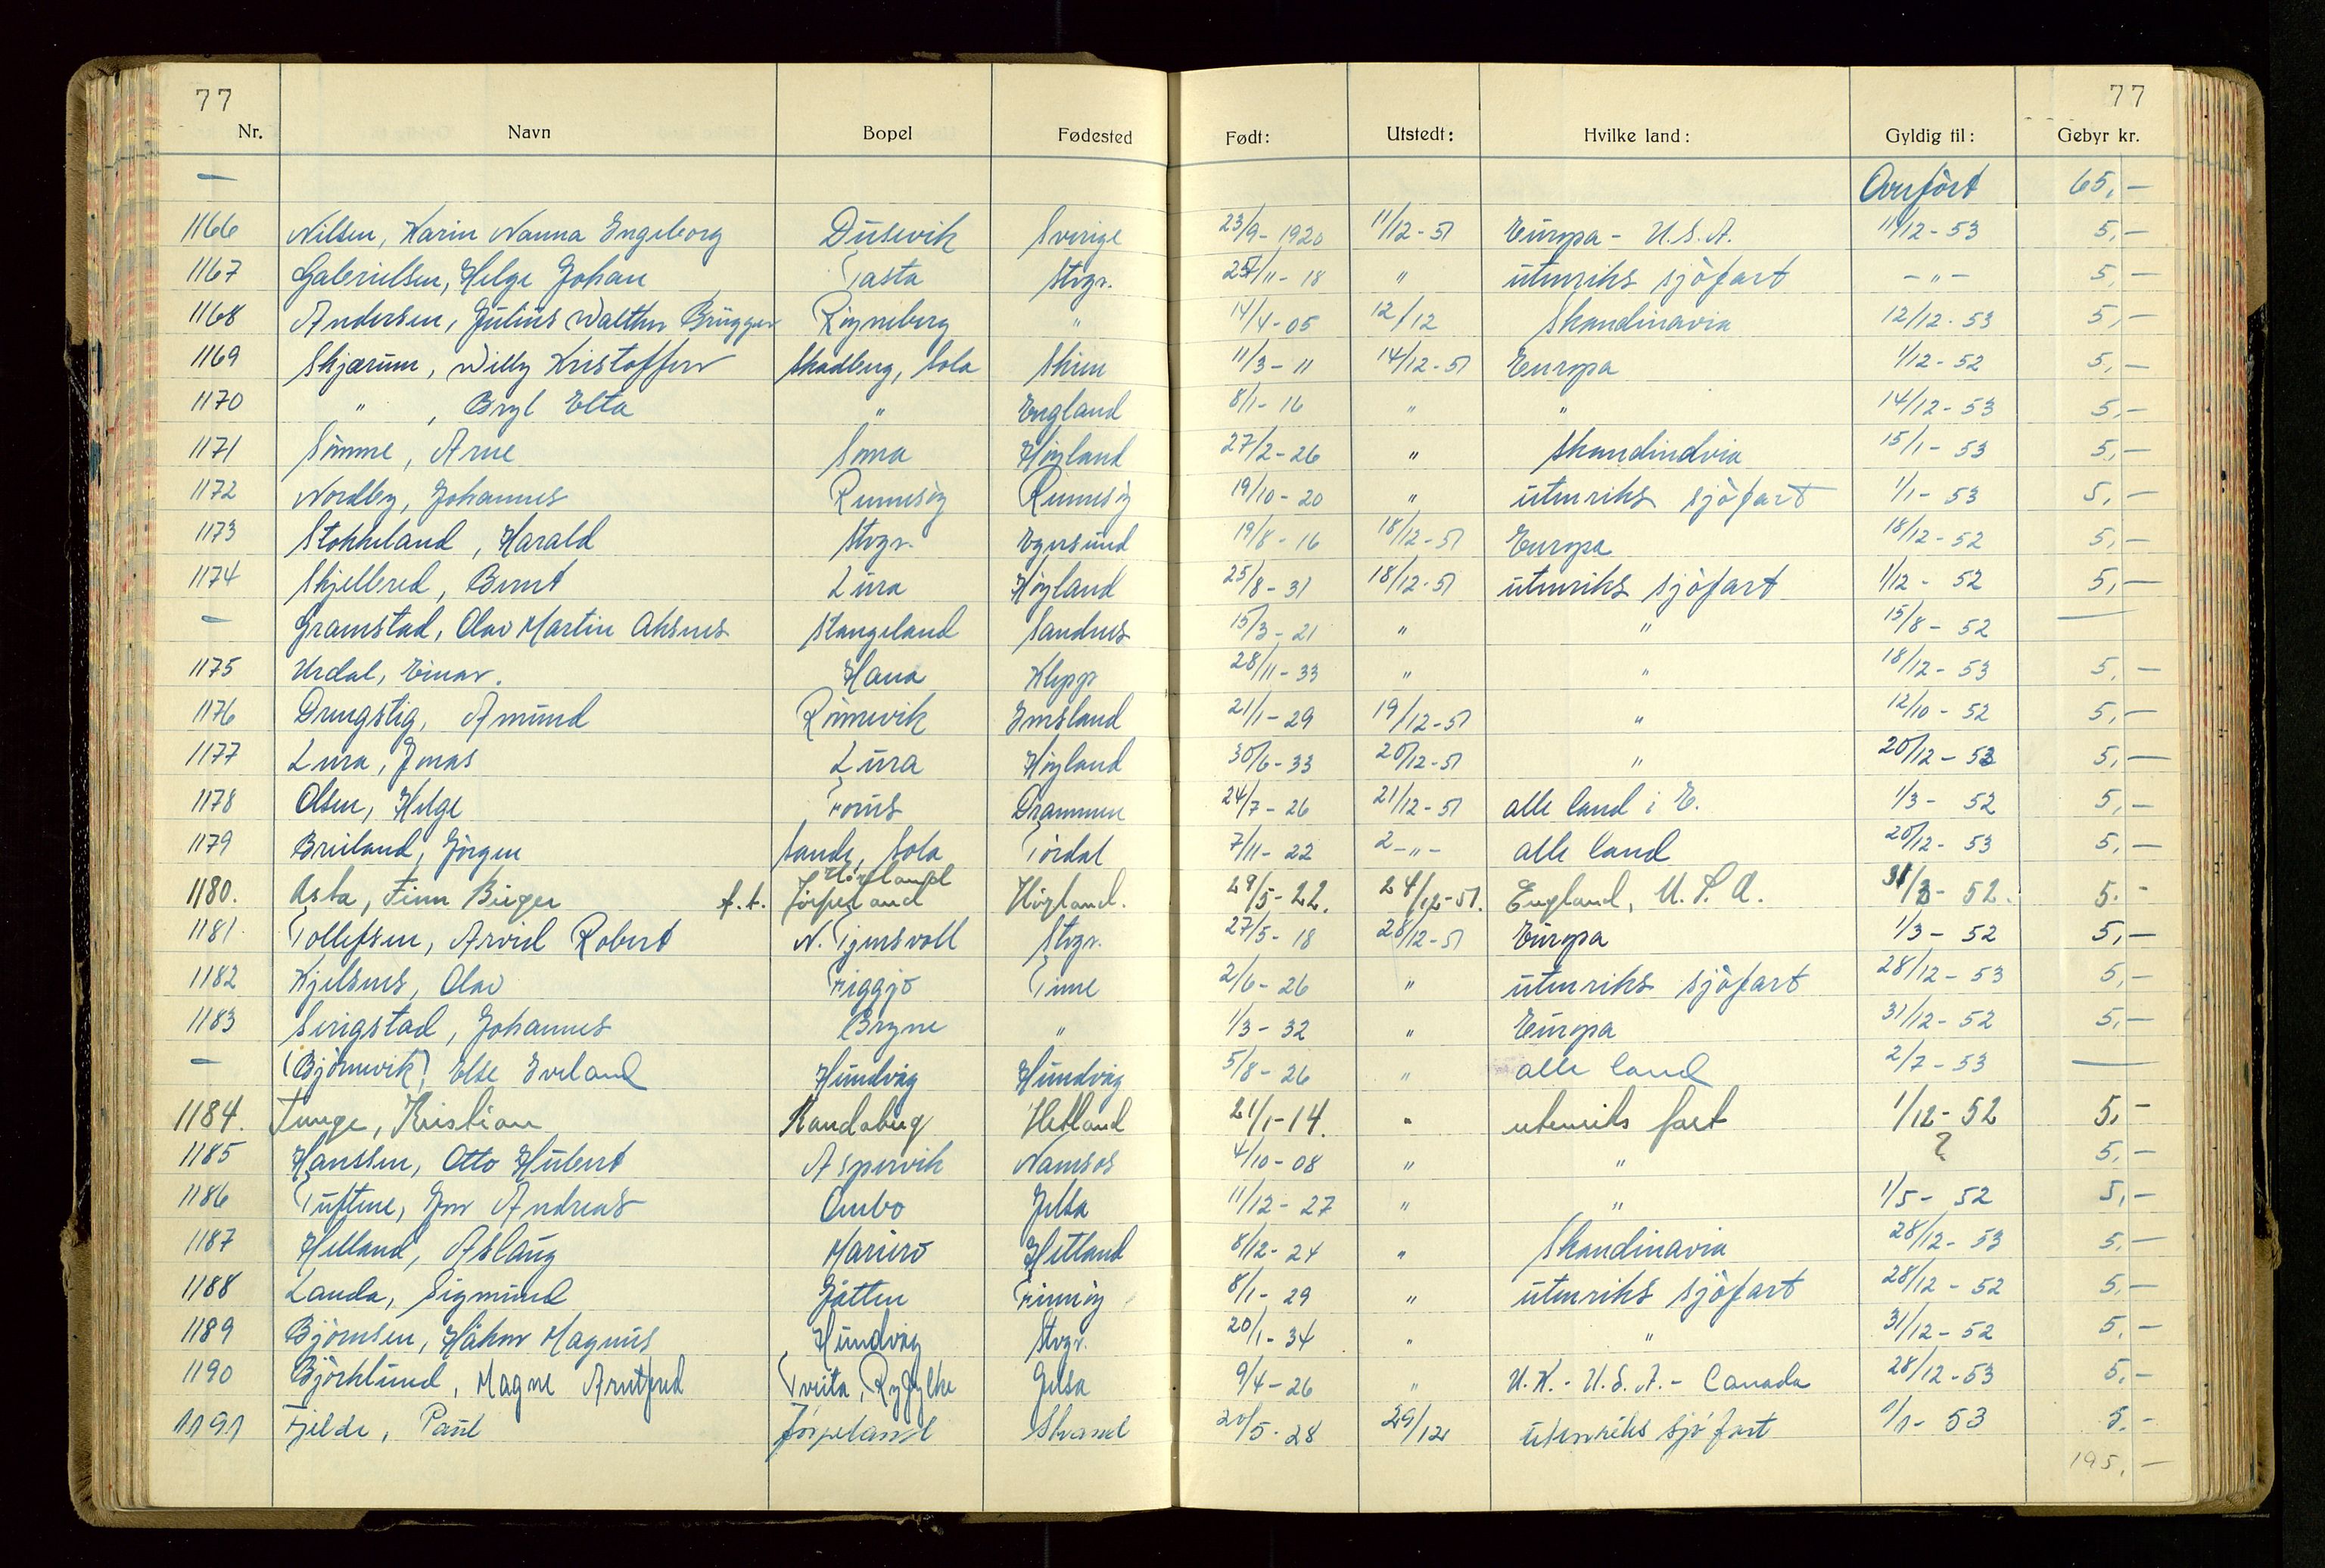 77 77
Nr. Navn Bopel Fødested Født: Utstedt: Hvilke land: Gyldig til: Gebyr kr.
— Overført 65,-
1166 Nilsen, Karin Nanna Engeborg Dusevik Sverige 23/9-1920 11/12-51 Europa - U.S.A. 11/12-53 5,-
1167 Gabrielsen, Helge Johan Tasta Stvgr. 25/11-18 " utenriks sjøfart -"- 5,-
1168 Andersen, Julius Walther Brügger Røyneberg " 14/4-05 12/12 Skandinavia 12/12-53 5,-
1169 Skjærum, Willy Kristoffer Skadberg, Sola Skien 11/3-11 14/12-51 Europa 1/12-52 5,-
1170 " , Bryl Elta " England 8/1-16 " " 14/12-53 5,-
1171 Sømme, Arne Soma Høyland 27/2-26 " Skandindvia 15/1-53 5,-
1172 Nordby, Johannes Rennesøy Rennesøy 19/10-20 " utenriks sjøfart 1/1-53 5,-
1173 Stokkeland, Harald Stvgr. Egersund 19/8-16 18/12-51 Europa 18/12-52 5,-
1174 Skjellered, Bernt Lura Høyland 25/8-31 18/12-51 utenriks sjøfart 1/12-52 5,-
— Gramstad, Olav Martin Aksnes Stangeland Sandnes 15/3-21 " " 15/8-52 —
1175 Urdal, Einar. Hana Klepp 28/11-33 " " 18/12-53 5,-
1176 Drengstig, Amund Rimevik Imsland 21/1-29 19/12-51 " 12/10-52 5,-
1177 Lura, Jonas Lura Høyland 30/6-33 20/12-51 " 20/12-53 5,-
1178 Olsen, Helge Forus Drammen 24/7-26 21/12-51 alle land i E. 1/3-52 5,-
1179 Breiland, Jørgen Sande, Sola Tørdal 7/11-22 2-"- alle land 20/12-53 5,-
1180. Asta, Finn Birger f.t. Høyland Jørpeland Høyland. 29/5-22. 24/12-51. England, U.S.A. 31/3-52. 5.-
1181 Tollefsen, Arvid Robert N. Tjensvoll Stvgr. 27/5-18 28/12-51 Europa 1/3-52 5,-
1182 Kjelsnes, Olav Figgjo Time 2/6-26 " utenriks sjøfart 28/12-53 5,-
1183 Serigstad, Johannes Bryne " 1/3-32 " Europa 31/12-52 5,-
— (Bjørnevik), Else Eveland Hundvåg Hundvåg 5/8-26 " alle land 2/7-53 —
1184. Tunge, Kristian Randaberg Hetland 21/1-14. " utenriks fart 1/12-52 5,-
1185 Hanssen, Otto Hubert Aspervik Namsos 4/10-08 " " ? 5,-
1186 Tuftene, Jon Andreas Ombo Jelsa 11/12-27 " " 1/5-52 5,-
1187 Helland, Aslaug Mariero Hetland 8/12-24 " Skandinavia 28/12-53 5,-
1188 Landa, Sigmund Gåtten Finnøy 8/1-29 " utenriks sjøfart 28/12-52 5,-
1189 Bjørnsen, Håkon Magnus Hundvåg Stvgr. 20/1-34 " " 31/12-52 5,-
1190 Bjørklund, Magne Arntfred Tveita, Ryfylke Jelsa 9/4-26 " U.K.-U.S.A.- Canada 28/12-53 5,-
1191 Fjelde, Paul Jørpeland Strand 20/5-28 29/12 utenriks sjøfart 1/1-53 5.-
195,-